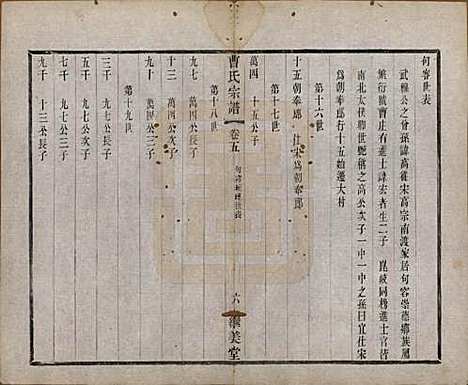 句容世表
武雅公之曾孫諱高從宋高宗南渡家居句容崇德鄉族屬
繁衍號曹庄有進士諱宏者生二子崑岐同榜進士官皆
南北太僕聘世艷稱之高公次子一中一中之孫曰宜仕宋
為朝奉郎行十五始遷大村
第十六世
十五朝奉郎 仕宋為朝奉郎
第十七世
萬四 十五公子
第十八世
九七 萬四公長子
十三 萬四公次子
九十 萬四公三子
第十九世
三千 九七公長子
五千 九七公次子
七千 九七公三子
九千 十三公長子
曹氏宗譜
卷五
世表
六
崇美堂